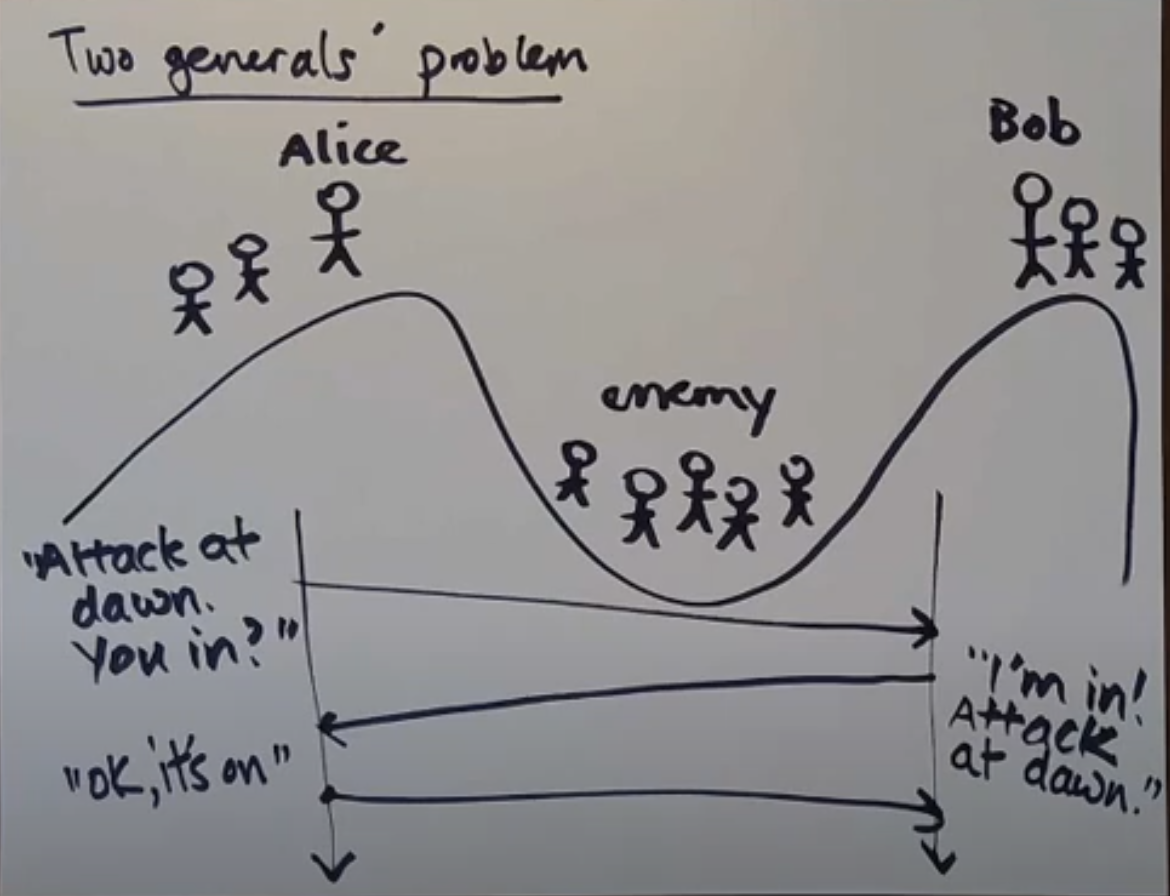 Two generals' problem
Alice
Bob
enemy
"Attack at
dawn.
You in?"
"I'm in!
Attack
at dawn."
"OK, it's on"